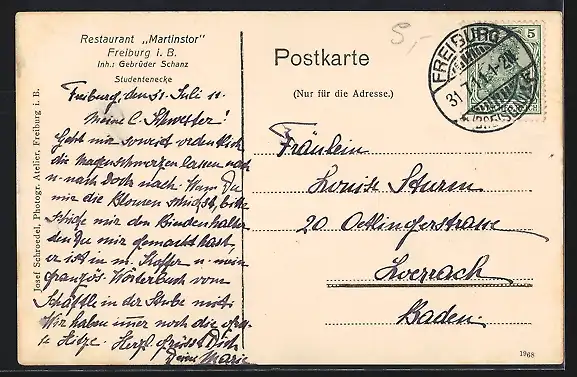 Restaurant „Martinstor"
Freiburg i. B.
Inh.: Gebrüder Schanz
Studentenecke
Freiburg, den 31. Juli 11.
Meine l. Schwester!
Geht mir soweit ordentlich
die Magenschmerzen lassen nach
u. nach doch nach. Wenn Du
mir die Blousen schickst, bitte
schicke mir den Bindenhalter
den Du mir gemacht hast,
er ist in m. Koffer u. mein
französ. Wörterbuch vom
Schäftle in der Stube mit.
Wir haben immer noch die
Hitze. Herzl. grüsst Dich
Deine Marie
Josef Schroedel, Photogr. Atelier, Freiburg i. B.
Postkarte
(Nur für die Adresse.)
5,-
FREIBURG
31.7.11.4-
5
Fräulein
Louise Sturm
20 Oetlingerstrasse
Loerrach
Baden.
1968